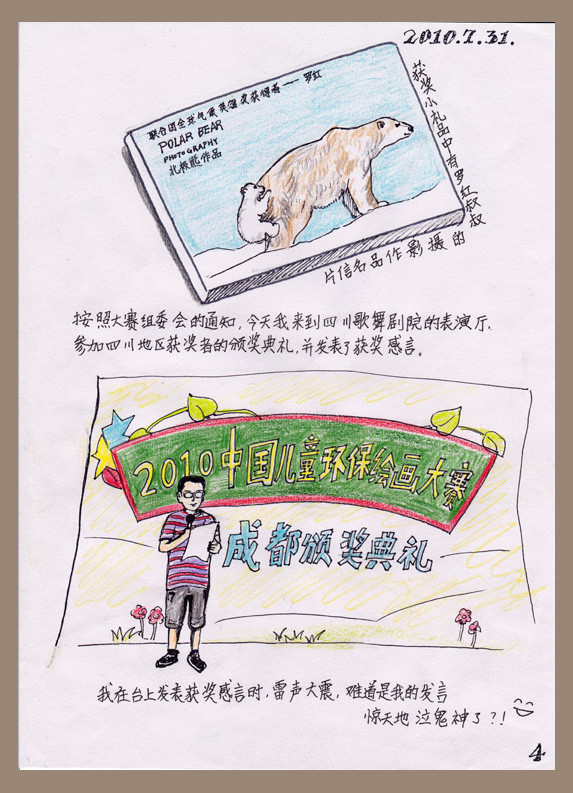 2010.7.31.
联合国全球气候英雄奖获得者——罗红
POLAR BEAR
PHOTOGRAPHY
北极熊作品
获奖小礼品中有罗红叔叔
的摄影作品名信片
按照大赛组委会的通知,今天我来到四川歌舞剧院的表演厅,
参加四川地区获奖者的颁奖典礼,并发表了获奖感言。
2010中国儿童环保绘画大赛
成都颁奖典礼
我在台上发表获奖感言时,雷声大震,难道是我的发言
惊天地泣鬼神了?!
4